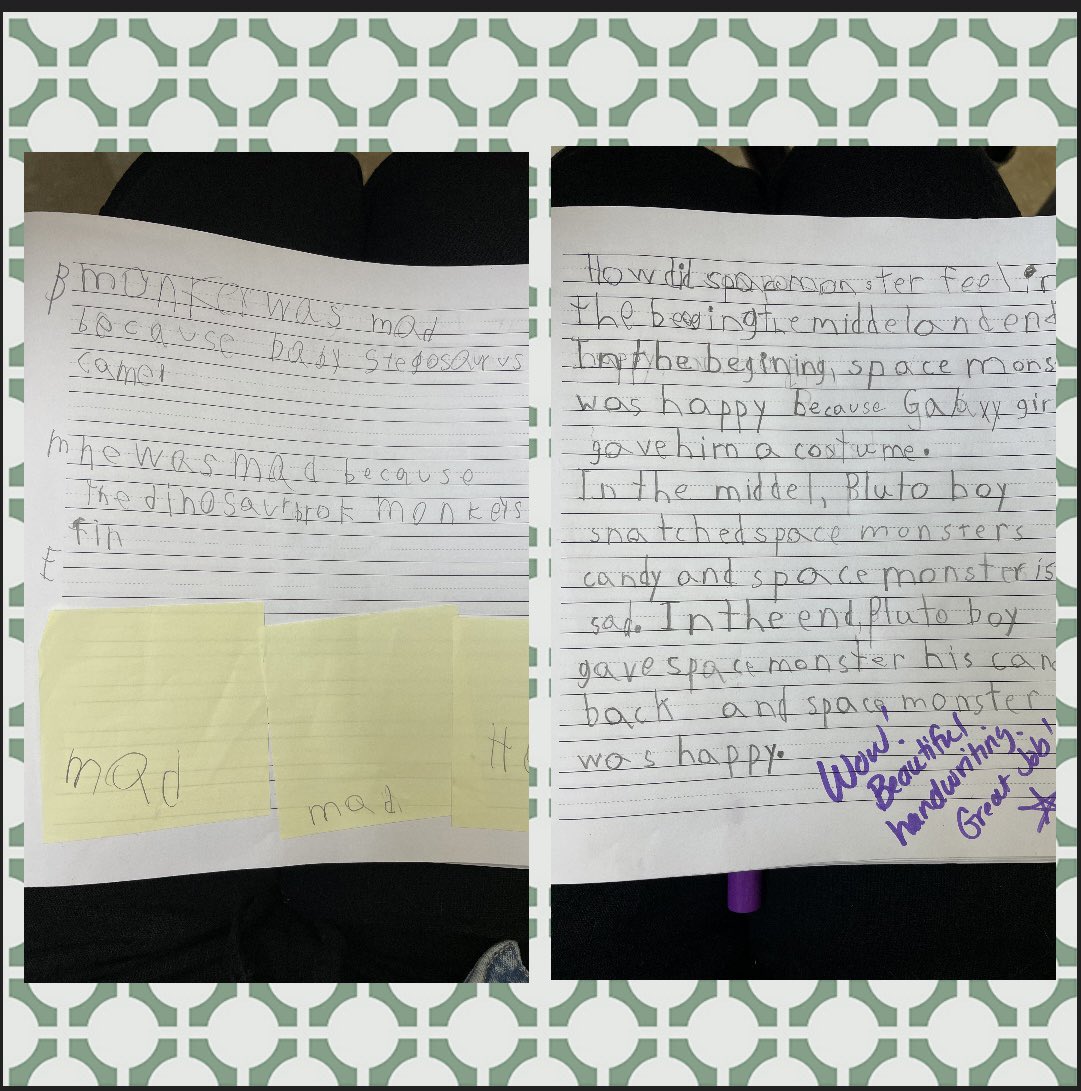 B monkey was mad
because baby stegosaurus
came!
m he was mad because
the dinosaur brok monkeys
fin
E
mad
mad
How did space monster feel
the beggingthe middel and end
In the begining, space mons
was happy Because Galaxy gir
gave him a costume.
In the middel, Pluto boy
snatched space monsters
candy and space monster is
sad. In the end, Pluto boy
gave space monster his can
back and space monster
was happy.
Wow!
Beautiful
handwriting.
Great Job!